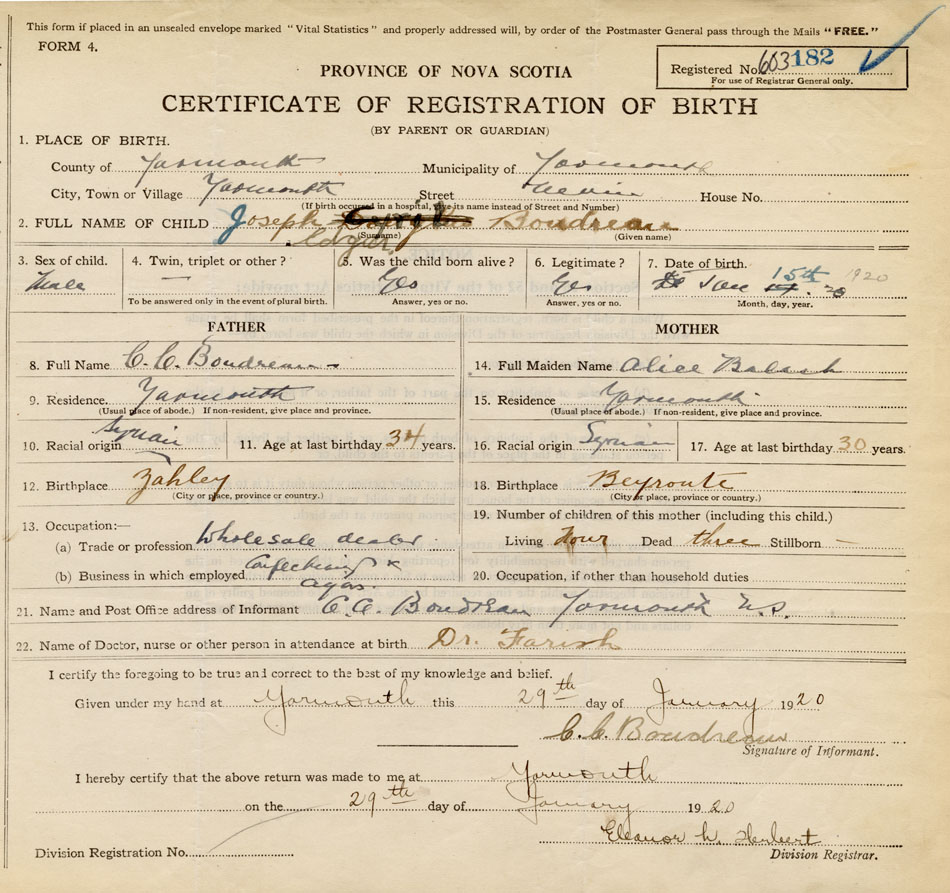 This form if placed in an unsealed envelope marked "Vital Statistics" and properly addressed will, by order of the Postmaster General pass through the Mails "FREE."
FORM 4.
Registered No. 603182
For use of Registrar General only.
PROVINCE OF NOVA SCOTIA
CERTIFICATE OF REGISTRATION OF BIRTH
(BY PARENT OR GUARDIAN)
1. PLACE OF BIRTH.
County of Yarmouth Municipality of Yarmouth
City, Town or Village Yarmouth Street House No.
(If birth occurred in a hospital, give its name instead of Street and Number)
2. FULL NAME OF CHILD Joseph Boudreau
(Surname) (Given name)
3. Sex of child. 4. Twin, triplet or other? 5. Was the child born alive? 6. Legitimate? 7. Date of birth.
Male — Yes Yes Jan 15th 20 1920
To be answered only in the event of plural birth. Answer, yes or no. Answer, yes or no. Month, day, year.
FATHER MOTHER
8. Full Name C. C. Boudreau 14. Full Maiden Name Alice
9. Residence. Yarmouth 15. Residence Yarmouth
(Usual place of abode.) If non-resident, give place and province. (Usual place of abode.) If non-resident, give place and province.
10. Racial origin Syrian 11. Age at last birthday 34 years. 16. Racial origin Syrian 17. Age at last birthday 30 years.
12. Birthplace Zahley 18. Birthplace Beyroute
(City or place, province or country.) (City or place, province or country.)
13. Occupation:— 19. Number of children of this mother (including this child.)
(a) Trade or profession Wholesale dealer Living four Dead three Stillborn —
(b) Business in which employed 20. Occupation, if other than household duties
21. Name and Post Office address of Informant C. C. Boudreau Yarmouth N.S.
22. Name of Doctor, nurse or other person in attendance at birth Dr. Farish
I certify the foregoing to be true and correct to the best of my knowledge and belief.
Given under my hand at Yarmouth this 29th day of January 1920
C. C. Boudreau
Signature of Informant.
I hereby certify that the above return was made to me at Yarmouth
on the 29th day of January 1920
Eleanor W. Herbert
Division Registration No. Division Registrar.